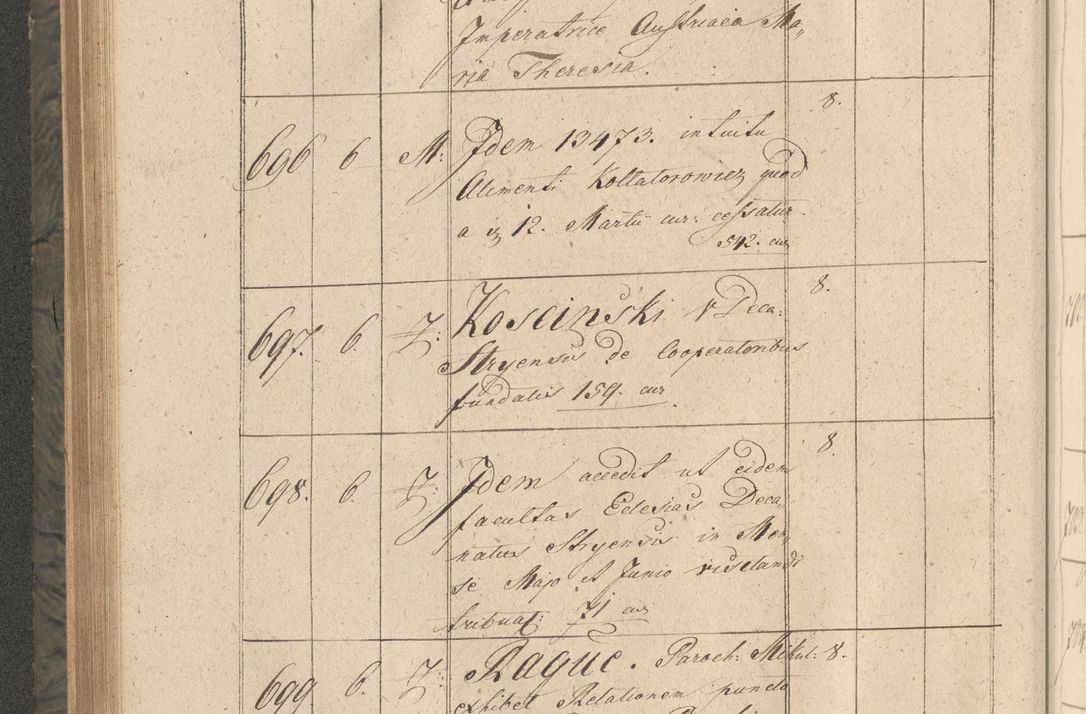 Imperatrice Austriaca Ma„
ria Theresia.
8.
696 6 M: Idem 13473. intuitu
Alimenti Kollatorowicz quod
a 12. Martii cur: cessatur.
542. cur
8.
697. 6. Z: Koscinski V Deca:
Stryensis de Cooperatoribus
fundatis 159. cur
8.
698. 6. Z: Idem accedit ut eidem
facultas Eclesias Deca„
natus Stryensis in Men„
se Majo et Junio visitandi
tribuat: 71 cur
699 6. Z: Ragué. Paroch: Mikul: 8.
exhibet Relationem puncto